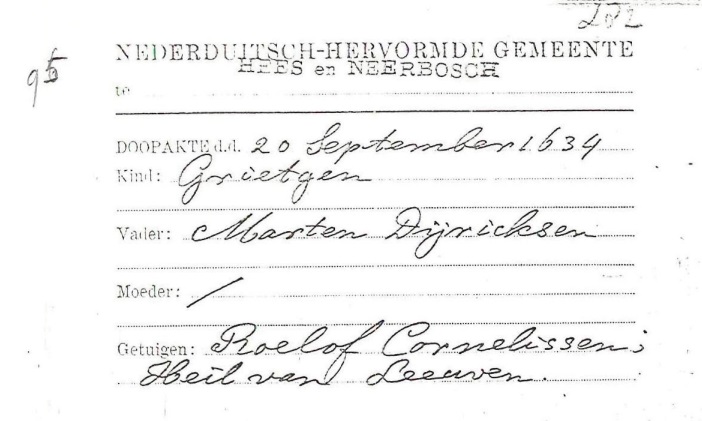 202
NEDERDUITSCH-HERVORMDE GEMEENTE
HEES en NEERBOSCH
95
te
DOOPAKTE d.d. 20 September 1634
Kind: Grietgen
Vader: Marten Dijricksen
Moeder: /
Getuigen: Roelof Cornelissen;
Heil van Leeuven.